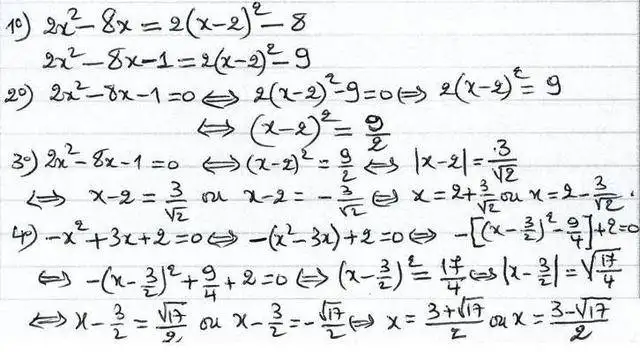 1º) 2x² - 8x = 2(x-2)² - 8
2x² - 8x - 1 = 2(x-2)² - 9
2º) 2x² - 8x - 1 = 0 ⟺ 2(x-2)² - 9 = 0 ⟺ 2(x-2)² = 9
⟺ (x-2)² = 9/2
3º) 2x² - 8x - 1 = 0 ⟺ (x-2)² = 9/2 ⟺ |x-2| = 3/√2
⟺ x-2 = 3/√2 ou x-2 = -3/√2 ⟺ x = 2+3/√2 ou x = 2-3/√2.
4º) -x² + 3x + 2 = 0 ⟺ -(x² - 3x) + 2 = 0 ⟺ -[(x-3/2)² - 9/4] + 2 = 0
⟺ -(x-3/2)² + 9/4 + 2 = 0 ⟺ (x-3/2)² = 17/4 ⟺ |x-3/2| = √(17/4)
⟺ x - 3/2 = √17/2 ou x - 3/2 = -√17/2 ⟺ x = (3+√17)/2 ou x = (3-√17)/2